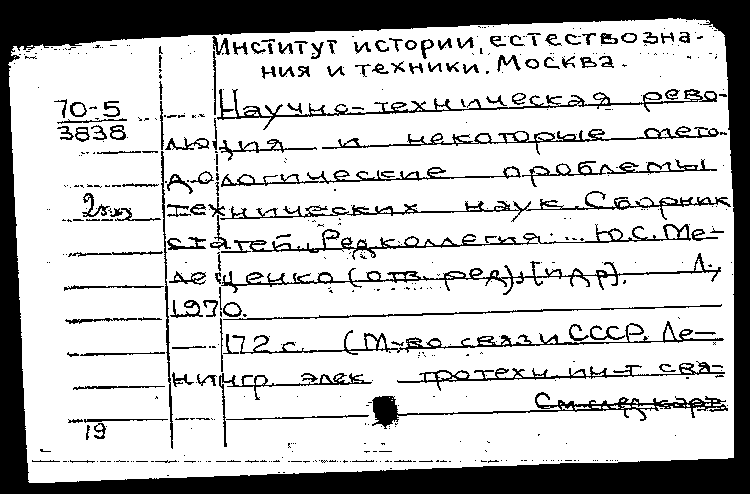 Институт истории, естествозна-
ния и техники. Москва.
70-5
3838
Научно-техническая рево-
люция и некоторые мето-
дологические проблемы
технических наук. Сборник
статей. Редколлегия: ... Ю.С. Ме-
лещенко (отв. ред), [и др]. Л.,
1970.
172 с. (М-во связи СССР. Ле-
нингр. элек тротехн. ин-т свя-
См. след. карт.
19